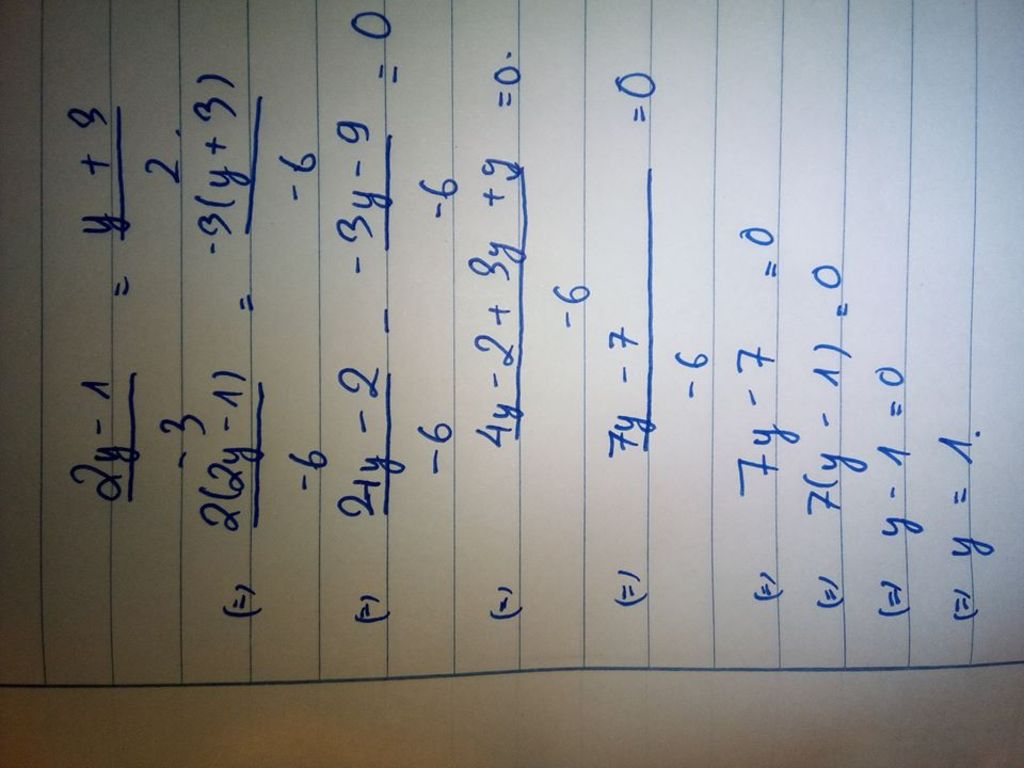 2y - 1 / -3 = y + 3 / 2.
(=) 2(2y - 1) / -6 = -3(y + 3) / -6
(=) 4y - 2 / -6 - -3y - 9 / -6 = 0
(=) 4y - 2 + 3y + 9 / -6 = 0.
(=) 7y - 7 / -6 = 0
(=) 7y - 7 = 0
(=) 7(y - 1) = 0
(=) y - 1 = 0
(=) y = 1.